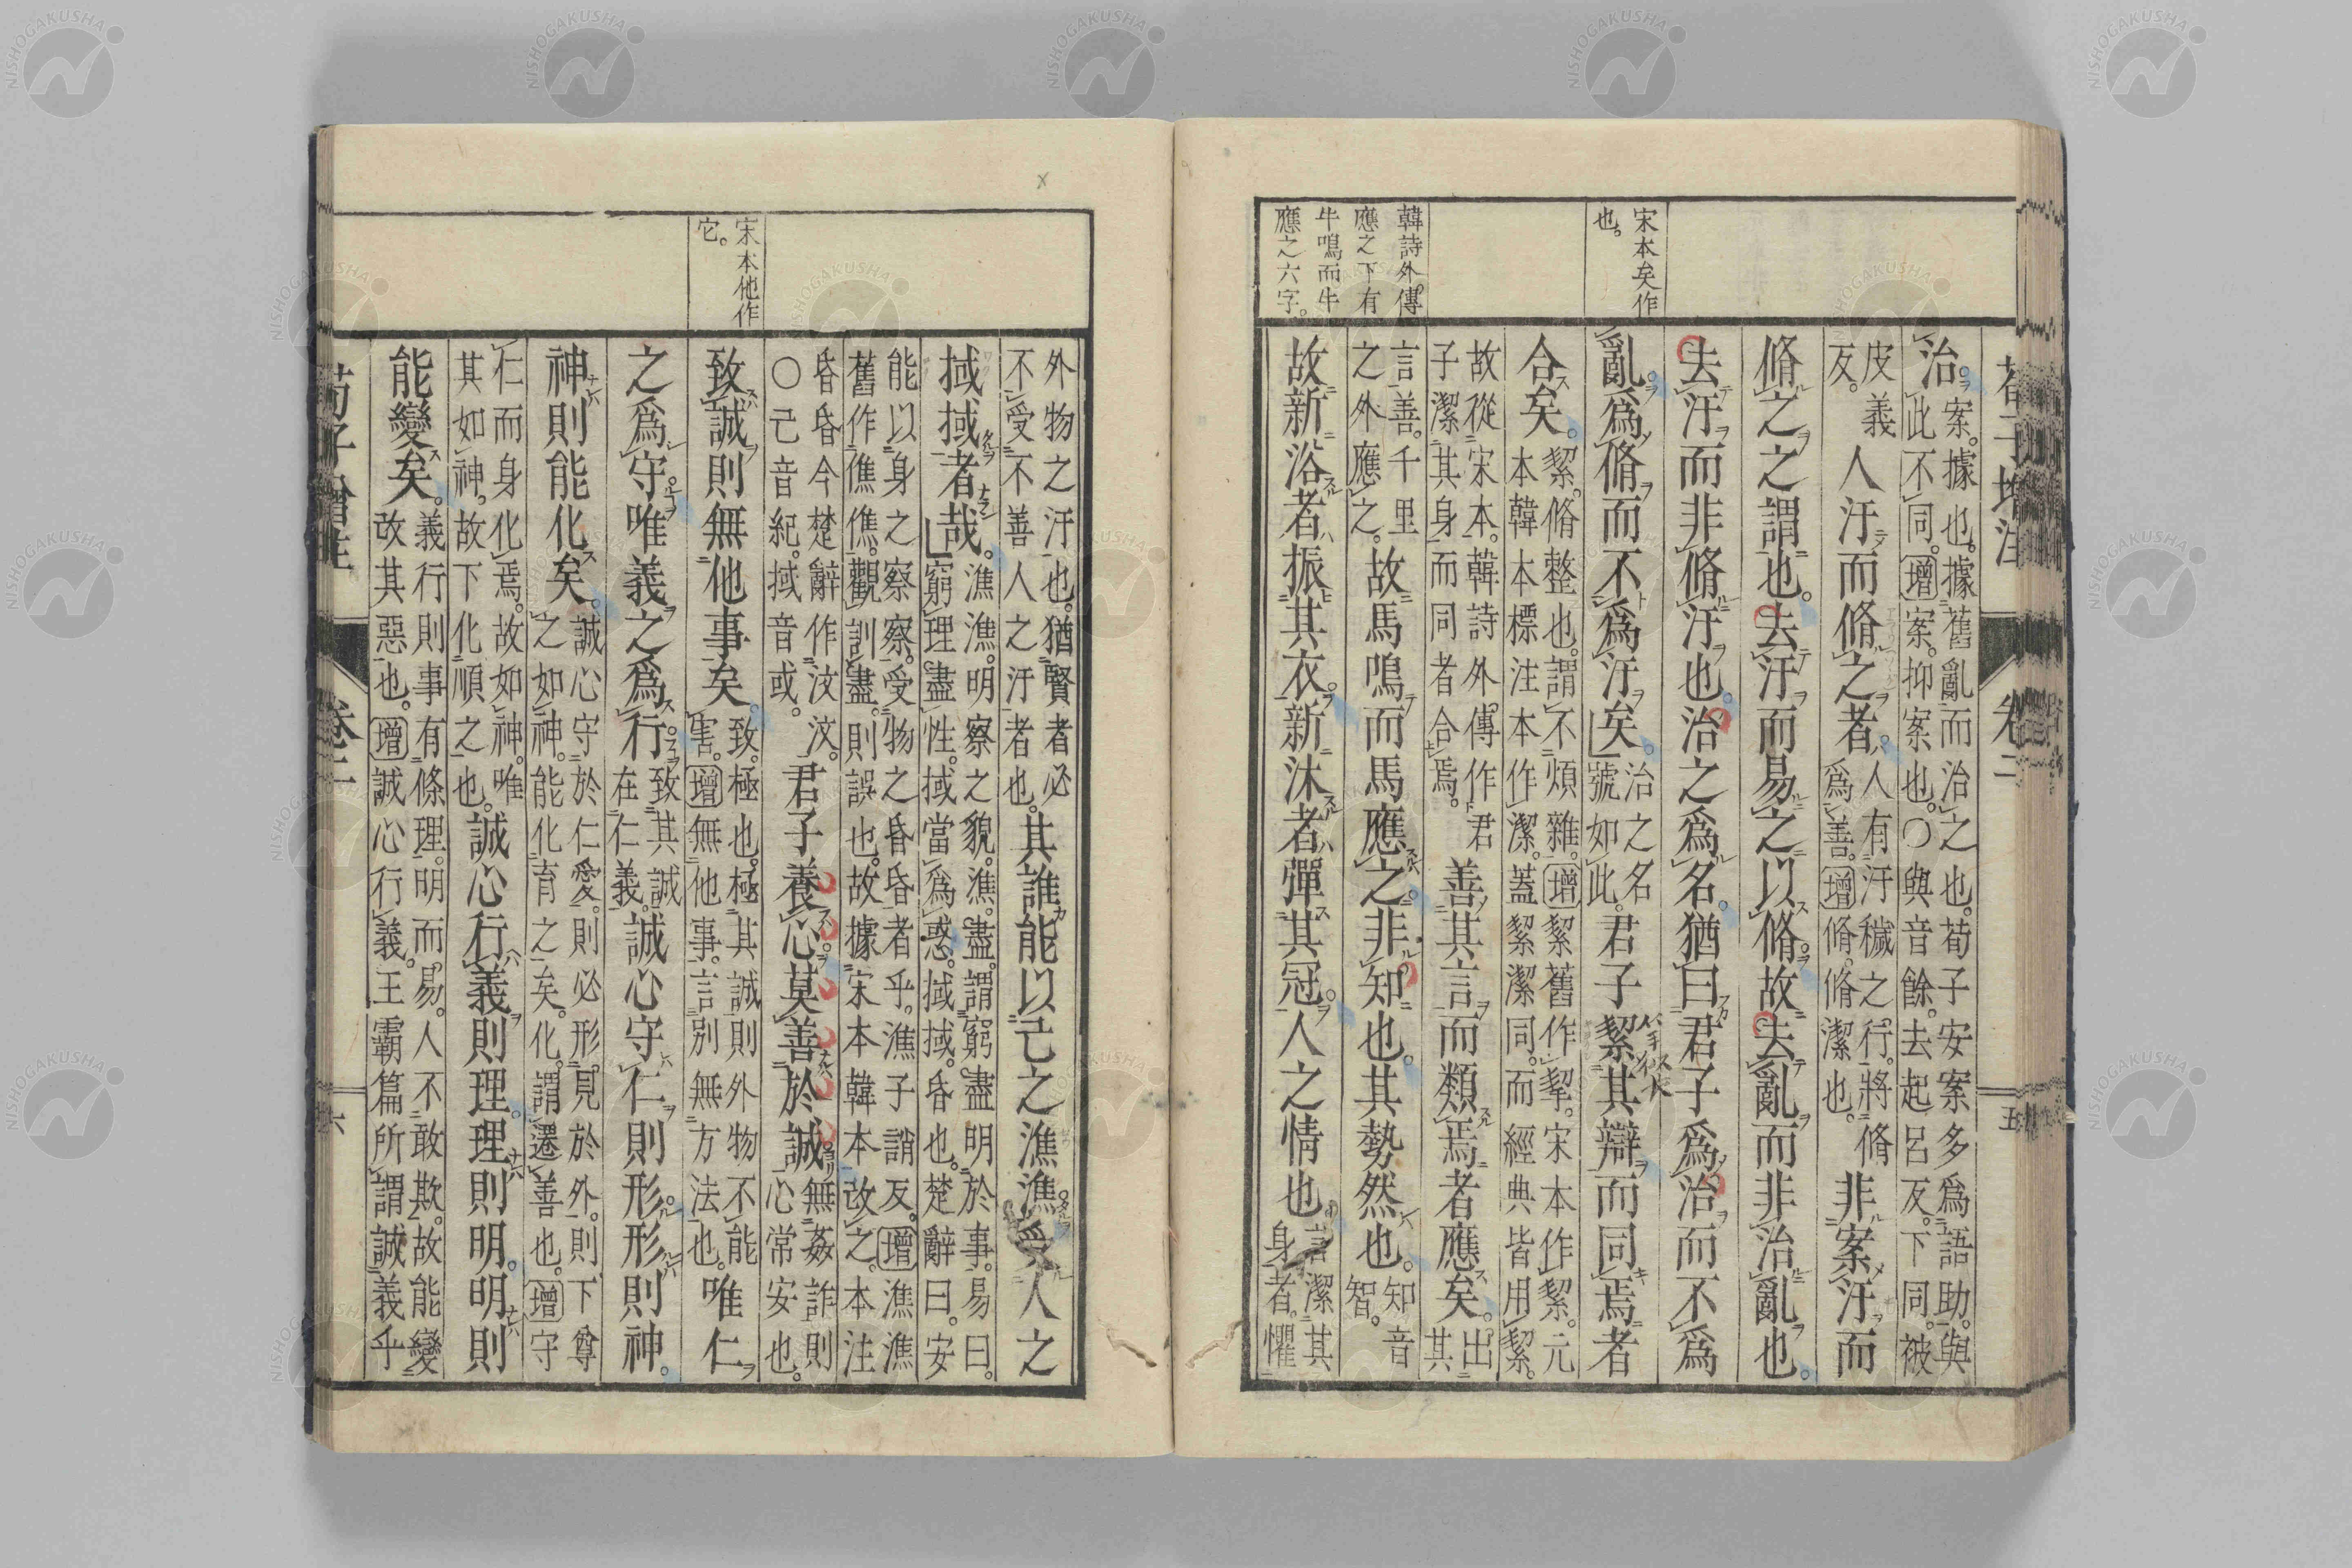 荀子增注 卷二 五
宋本矣作
也。
韓詩外傳
應之下有
牛鳴而牛
應之六字。
治。案。據也。據舊亂而治之也。荀子安案多爲語助。與
此不同。增案。抑案也。○與音餘。去起呂反。下同。被
皮義
反。人汙而脩之者。人有汙穢之行。將脩
爲善。增脩。脩潔也。非案汙而
脩之之謂也。去汙而易之以脩。故去亂而非治亂也。
去汙而非脩汙也。治之爲名。猶曰君子爲治而不爲
亂。爲脩而不爲汙矣。治之名
號如此。君子絜其辯而同焉者
合矣。絜。脩整也。謂不煩雜。增絜舊作挈。宋本作絜。元
本韓本標注本作潔。蓋絜潔同。而經典皆用絜。
故從宋本。韓詩外傳作君
子潔其身而同者合焉。善其言而類焉者應矣。出其
言善。千里
之外應之。故馬鳴而馬應之。非知也。其勢然也。知音
智。
故新浴者振其衣。新沐者彈其冠。人之情也。言潔其
身者。懼
外物之汙也。猶賢者必
不受不善人之汙者也。其誰能以己之潐潐受人之
掝掝者哉。潐潐。明察之貌。潐。盡。謂窮盡明於事。易曰。
窮理盡性。掝當爲惑。掝掝。昏也。楚辭曰。安
能以身之察察。受物之昏昏者乎。潐子誚反。增潐潐
舊作僬僬。觀訓盡。則誤也。故據宋本韓本改之。本注
昏昏今楚辭作汶汶。
○己音紀。掝音或。君子養心莫善於誠。無姦詐則
心常安也。
致誠則無他事矣。致。極也。極其誠則外物不能
害。增無他事。言別無方法也。唯仁
之爲守。唯義之爲行。致其誠
在仁義誠心守仁則形。形則神。
神則能化矣。誠心守於仁愛。則必形見於外。則下尊
之如神。能化育之矣。化。謂遷善也。增守
仁而身化焉。故如神。唯
其如神。故下化順之也。誠心行義則理。理則明。明則
能變矣。義行則事有條理。明而易。人不敢欺。故能變
改其惡也。增誠心行義。王霸篇所謂誠義乎
宋本他作
它。
荀子增注 卷二 六